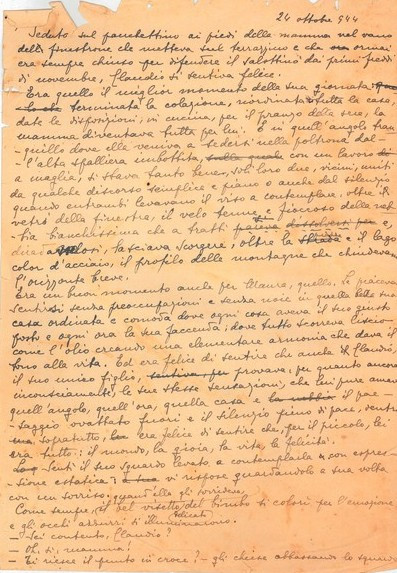 24 ottobre 944
Seduto sul panchettino ai piedi della mamma nel vano
della finestrone che metteva sul terrazzino e che ormai
era sempre chiuso per difendere il salottino dai primi freddi
di novembre, Claudio si sentiva felice.
Era quello il miglior momento della sua giornata
terminata la colazione, riordinata tutta la casa,
date le disposizioni, in cucina, per il pranzo della sera, la
mamma diventava tutta per lui. E in quell'angolo tran-
quillo dove elle veniva a sedersi nella poltrona dal-
l'alta spalliera imbottita, con un lavoro
a maglia, si stava tanto bene, soli loro due, vicini, uniti
da qualche discorso semplice e piano o anche dal silenzio
quando entrambi levavano il viso a contemplare, oltre i
vetri della finestra, il velo tenue e fioccoso della neb-
bia bianchissima che a tratti pareva dissolversi e,
lasciava scorgere, oltre la strada e il lago
color d'acciaio, il profilo delle montagne che chiudevano
l'orizzonte breve.
Era un buon momento anche per Maura, quello. Le piaceva
sentirsi senza preoccupazioni e senza noie in quella bella sua
casa ordinata e comoda dove ogni cosa aveva il suo giusto
posto e ogni ora la sua faccenda; dove tutto scorreva liscio
come l'olio creando una elementare armonia che dava il
tono alla vita. Ed era felice di sentire che anche il Claudio,
il suo unico figlio, sentiva, per provava, per quanto ancora
inconsciamente, le sue stesse sensazioni, che lui pure amava
quell'angolo, quell'ora, quella casa e la nebbia il pae-
saggio ovattato fuori e il silenzio pieno di pace, dentro
soprattutto, era felice di sentire che, per il piccolo, lei
era tutto: il mondo, la gioia, la vita, la felicità.
Sentì il suo sguardo levato a contemplarla con espres-
sione estatica e vi rispose guardandolo a sua volta
con un sorriso. quand'ella gli sorrideva,
Come sempre, il bel visetto del bimbo si colorì per l'emozione
delicati
e gli occhi azzurri si illuminarono.
- Sei contento, Claudio?
- Oh, sì, mamma!
- Ti riesce il punto in croce? - gli chiese abbassando lo sguardo